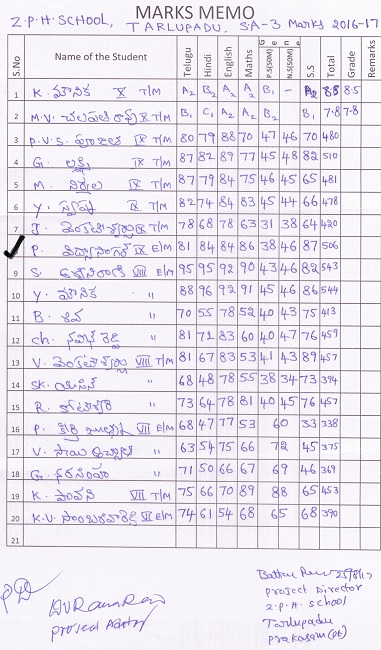 MARKS MEMO
Z.P.H. SCHOOL, TARLUPADU, SA-3 Marks 2016-17
S.No Name of the Student Telugu Hindi English Maths Gene P.S(50M) N.S(50M) S.S Total Grade Remarks
1 K. మౌనిక X T/M A2 B2 A2 A2 B1 - A2 8.8 8.5
2 M.V. X T/M B1 C1 A2 A2 B2 B1 7.8 7.8
3 P.V.S. IX T/M 80 79 88 70 47 46 70 480
4 G. లక్ష్మి IX T/M 87 82 89 77 45 48 82 510
5 M. నిర్మల IX T/M 87 79 84 75 46 45 65 481
6 Y. స్వప్న IX T/M 82 74 84 83 45 44 66 478
7 IX T/M 78 68 78 63 31 38 64 420
8 P. విద్యాసాగర్ IX E/M 81 84 84 86 38 46 87 506
9 S. VIII E/M 95 95 92 90 43 46 82 543
10 Y. మౌనిక " 88 96 92 91 45 46 86 544
11 B. శివ " 70 55 78 52 40 43 75 413
12 Ch. నవీన్ రెడ్డి " 81 72 83 60 40 47 76 459
13 V. వెంకటేశ్వర్లు VIII T/M 81 67 83 53 41 43 89 457
14 SK. " 68 48 78 55 38 34 73 394
15 R. " 73 64 78 81 40 45 76 457
16 P. VII E/M 68 47 77 53 60 33 338
17 V. సాయి " 63 54 75 66 72 45 375
18 G. నరసింహ " 71 50 66 67 69 46 369
19 K. పావని VII T/M 75 66 70 89 88 65 453
20 K.V. VII E/M 74 61 54 68 65 68 390
21
25/8/17
Project Director
Z.P.H. School
Tarlupadu
Prakasam (Dt)